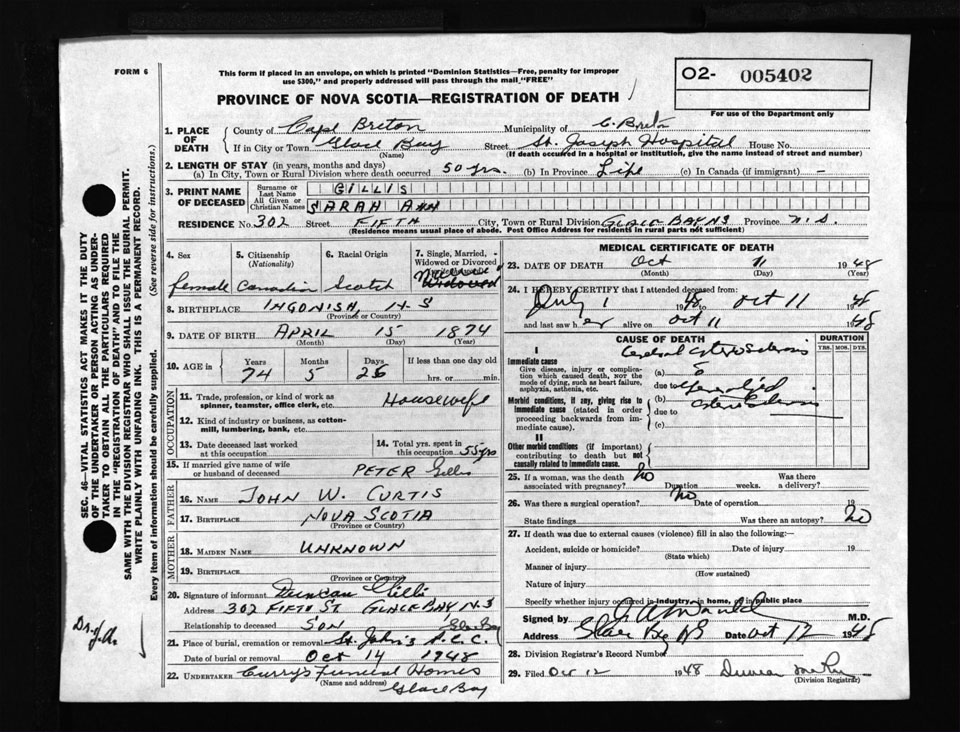 FORM 6
This form if placed in an envelope, on which is printed "Dominion Statistics—Free, penalty for improper
use $300," and properly addressed will pass through the mail "FREE"
PROVINCE OF NOVA SCOTIA—REGISTRATION OF DEATH
O2- 005402
For use of the Department only
1. PLACE OF DEATH
County of Cape Breton Municipality of C. Breton
If in City or Town Glace Bay Street St. Joseph Hospital House No.
(Name) (If death occurred in a hospital or institution, give the name instead of street and number)
2. LENGTH OF STAY (in years, months and days)
(a) In City, Town or Rural Division where death occurred 50 yrs. (b) In Province Life (c) In Canada (if immigrant) -
3. PRINT NAME OF DECEASED
Surname or Last Name GILLIS
All Given or Christian Names SARAH ANN
RESIDENCE No. 302 Street FIFTH City, Town or Rural Division GLACE BAY NS Province N.S.
(Residence means usual place of abode. Post Office Address for residents in rural parts not sufficient)
4. Sex
female
5. Citizenship (Nationality)
Canadian
6. Racial Origin
Scotch
7. Single, Married, Widowed or Divorced
Widowed
8. BIRTHPLACE INGONISH, N S
(Province or Country)
9. DATE OF BIRTH APRIL 15 1874
(Month) (Day) (Year)
10. AGE in
Years Months Days If less than one day old
74 5 26 hrs. or min.
OCCUPATION
11. Trade, profession, or kind of work as
spinner, teamster, office clerk, etc. HOUSEWIFE
12. Kind of industry or business, as cotton-
mill, lumbering, bank, etc.
13. Date deceased last worked
at this occupation
14. Total yrs. spent in
this occupation 55 yrs
15. If married give name of wife
or husband of deceased PETER Gillis
FATHER
16. NAME JOHN W. CURTIS
17. BIRTHPLACE NOVA SCOTIA
(Province or Country)
MOTHER
18. MAIDEN NAME UNKNOWN
19. BIRTHPLACE
(Province or Country)
20. Signature of informant Duncan Gillis
Address 302 FIFTH ST. GLACE BAY N.S
Relationship to deceased SON
21. Place of burial, cremation or removal St. John's
Date of burial or removal Oct 14 1948
22. UNDERTAKER Curry's Funeral Homes
(Name and address) Glace Bay
MEDICAL CERTIFICATE OF DEATH
23. DATE OF DEATH Oct 11 1948
(Month) (Day) (Year)
24. I HEREBY CERTIFY that I attended deceased from:
July 1 1948 to Oct 11 1948
and last saw her alive on Oct 11 1948
CAUSE OF DEATH
DURATION
YRS. MOS. DYS.
I
Immediate cause
Give disease, injury or complica-
tion which caused death, NOT the
mode of dying, such as heart failure,
asphyxia, asthenia, etc.
(a)
due to
Morbid conditions, if any, giving rise to
immediate cause (stated in order
proceeding backwards from im-
mediate cause).
(b)
due to
(c)
II
Other morbid conditions (if important)
contributing to death but not
causally related to immediate cause.
25. If a woman, was the death
associated with pregnancy? no Duration weeks. Was there
a delivery?
26. Was there a surgical operation? No Date of operation 19
State findings Was there an autopsy? no
27. If death was due to external causes (violence) fill in also the following:—
Accident, suicide or homicide? Date of injury 19
(State which)
Manner of injury
(How sustained)
Nature of injury
Specify whether injury occurred in industry, in home, or in public place
Signed by M.D.
Address Glace Bay NS Date Oct 12 1948
28. Division Registrar's Record Number
29. Filed Oct 12 1948 Duncan
(Division Registrar)
SEC. 46—VITAL STATISTICS ACT MAKES IT THE DUTY
OF THE UNDERTAKER OR PERSON ACTING AS UNDER-
TAKER TO OBTAIN ALL THE PARTICULARS REQUIRED
IN THE "REGISTRATION OF DEATH" AND TO FILE THE
SAME WITH THE DIVISION REGISTRAR WHO SHALL ISSUE THE BURIAL PERMIT.
WRITE PLAINLY WITH UNFADING INK. THIS IS A PERMANENT RECORD.
Every item of information should be carefully supplied. (See reverse side for instructions.)